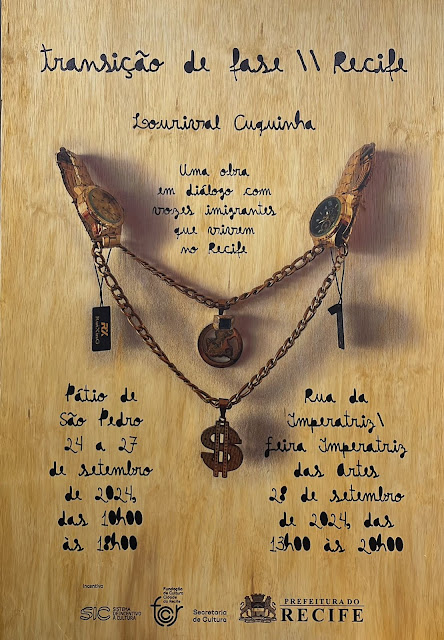 transição de fase \\ Recife
Lourival Cuquinha
Uma obra
em diálogo com
vozes imigrantes
que vivem
no Recife
1
Pátio de
São Pedro
24 a 27
de setembro
de 2024,
das 10h00
às 18h00
Rua da
Imperatriz\
Feira Imperatriz
das Artes
28 de setembro
de 2024, das
13h00 às 20h00
Incentivo
SIC SISTEMA
DE INCENTIVO
À CULTURA
Fundação
de Cultura
Cidade
do Recife
fccr
Secretaria
de Cultura
PREFEITURA DO
RECIFE